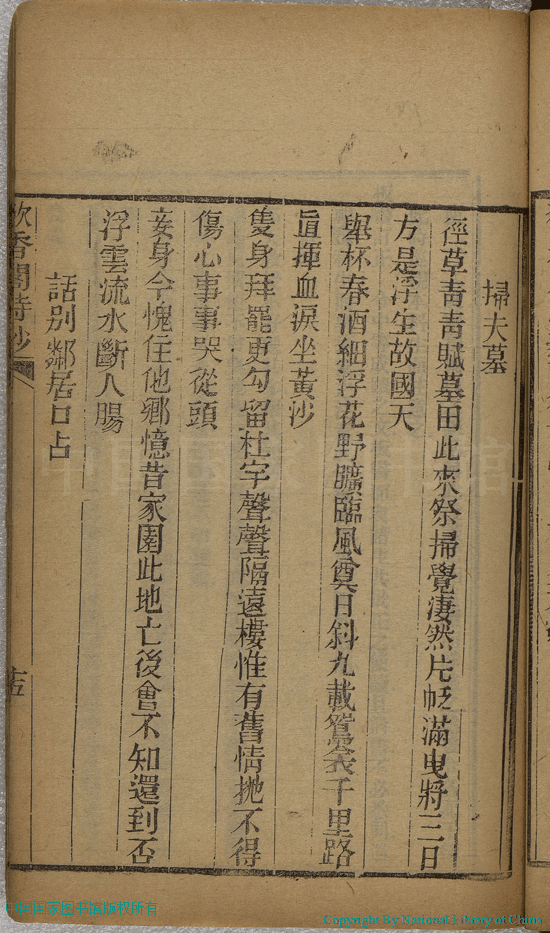 掃夫墓
徑草靑靑賦墓田此來祭掃覺淒然片帆滿曳將三日
方是浮生故國天
舉杯春酒細浮花野曠臨風奠日斜九載鴛衾千里路
直揮血淚坐黃沙
隻身拜罷更勾留杜宇聲聲隔遠樓惟有舊情抛不得
傷心事事哭從頭
妾身今愧住他鄉憶昔家園此地亡後會不知還到否
浮雲流水斷人腸
話别鄰居口占
吹香閣詩抄
中國國家圖書館版权所有
Copyright By National Library of China